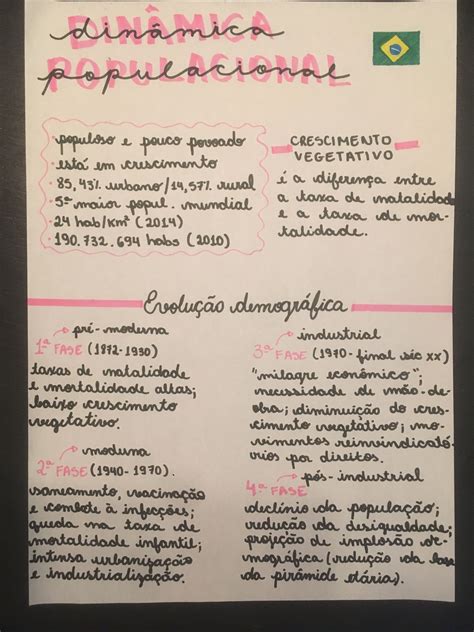 DINÂMICA
POPULACIONAL
populoso e pouco povoado
· está em crescimento
· 85,43% urbano/14,57% rural
· 5ª maior popul. mundial
· 24 hab/Km² (2014)
· 190.732.694 habs (2010)
CRESCIMENTO
VEGETATIVO
é a diferença entre
a taxa de natalidade
e a taxa de mor-
talidade.
Evolução demográfica
→ pré-moderna
1ª FASE (1872-1930)
taxas de natalidade
e mortalidade altas;
baixo crescimento
vegetativo.
→ moderna
2ª FASE (1940-1970).
saneamento, vacinação
e combate à infecções;
queda na taxa de
mortalidade infantil;
intensa urbanização
e industrialização.
→ industrial
3ª FASE (1970-final séc XX)
"milagre econômico";
necessidade de mão-de-
obra; diminuição do cres-
cimento vegetativo; mo-
vimentos reinvindicató-
rios por direitos.
→ pós-industrial
4ª FASE
declínio da população;
redução da desigualdade;
projeção de implosão de-
mográfica (redução da base
da pirâmide etária).